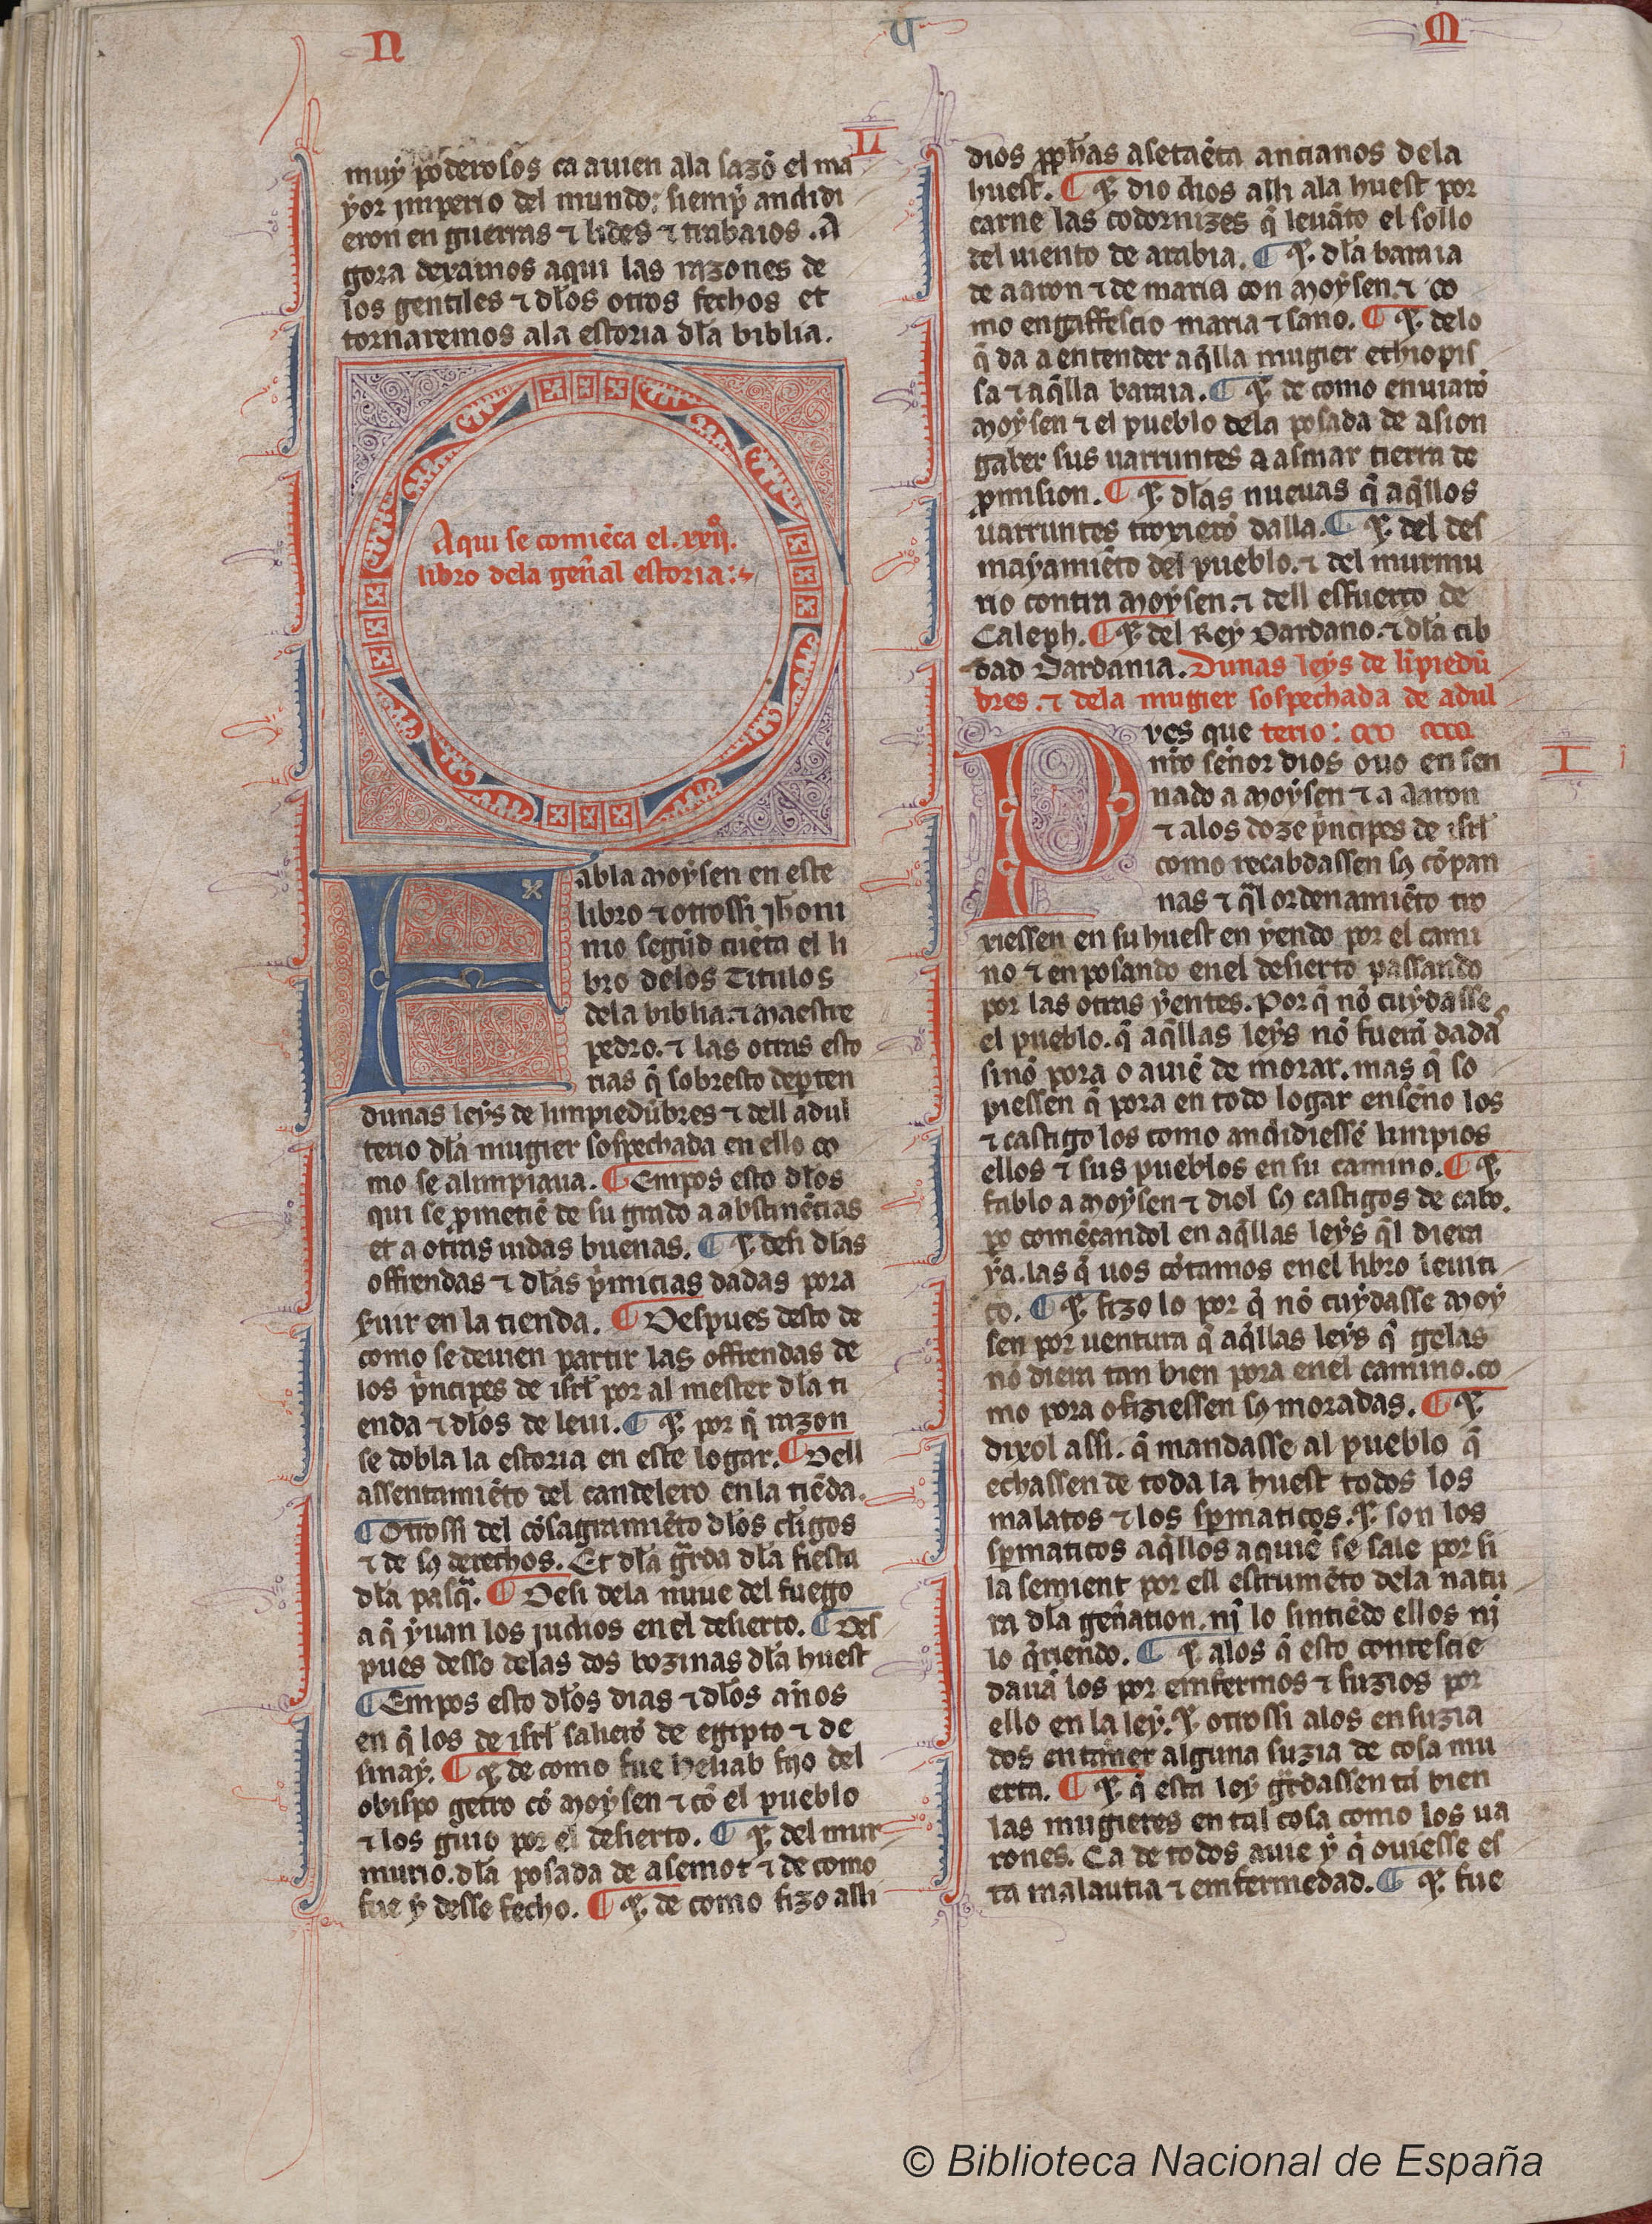 N U M
LI
muy poderosos ca auien ala sazõ el ma
yor imperio del mundo: siemp̃ andidi
eron en guerras ⁊ lides ⁊ trabaios. A
gora dexamos aqui las razones de
los gentiles ⁊ dłos otros fechos et
tornaremos ala estoria dła biblia.
Aqui se comiẽca el .xxij.º
libro dela geñal estoria:
Fabla moysen en este
libro ⁊ otrossi jħoni
mo segũd cuẽta el li
bro delos Titulos
dela biblia. ⁊ maestre
pedro. ⁊ las otras esto
rias q̃ sobresto depten
dunas leys de limpiedũbres ⁊ dell adul
terio dła mugier sospechada en ello co
mo se alimpiaua. ¶ Empos esto dłos
qui se ꝓmetiẽ de su grado a abstinẽcias
et a otras uidas buenas. ¶ ⁊. desi dłas
offrendas ⁊ dłas p̃micias dadas pora
ẜuir en la tienda. ¶ Despues desto de
como se deuien partir las offrendas de
los p̃ncipes de isrł por al mester dła ti
enda ⁊ dłos de leui. ¶ ⁊. por q̃ razon
se dobla la estoria en este logar. ¶ Dell
assentamiẽto del candelero en la tiẽda.
¶ Otrossi del cõsagramiẽto dłos cłigos
⁊ de sꝯ derechos. Et dła g̃rda dła fiesta
dła pasq̃. ¶ Desi dela nuue del fuego
a q̃ yuan los judios en el desierto. ¶ Des
pues desso delas dos bozinas dła huest
¶ Empos esto dłos dias ⁊ dłos años
en q̃ los de isrł salierõ de egipto ⁊ de
sinay. ¶ ⁊. de como fue heliab fijo del
obispo getro cõ moysen ⁊ cõ el pueblo
⁊ los guio por el desierto. ¶ ⁊. del mur
murio. dła posada de asemot ⁊ de como
fue y desse fecho. ¶ ⁊. de como fizo alli
dios ꝓpħas a setaẽta ancianos dela
huest. ¶ ⁊. dio dios alli ala huest por
carne las codornizes q̃ leuãto el sollo
del uiento de arabia. ¶ ⁊. dła baraia
de aaron ⁊ de maria con moysen. ⁊ co
mo engaffescio maria ⁊ sano. ¶ ⁊. delo
q̃ da a entender aq̃lla mugier ethiopis
sa ⁊ aq̃lla baraia. ¶ ⁊. de como enuiarõ
moysen ⁊ el pueblo dela posada de asion
gaber sus uarruntes a asmar tierra de
ꝓmision. ¶ ⁊. dłas nueuas q̃ aq̃llos
uarruntes troxierõ dalla. ¶ ⁊. del des
mayamiẽto del pueblo. ⁊ del murmu
rio contra moysen. ⁊ dell esfuerço de
Caleph. ¶ ⁊. del Rey Dardano. ⁊ dła cib
dad Dardania. Dunas leys de lĩpiedũ
bres. ⁊ dela mugier sospechada de adul
Pves que terio:
nr̃o señor dios ouo ensen
nado a moysen ⁊ a aaron
⁊ alos doze p̃ncipes de isrł
como recabdassen sꝯ cõpan
nas ⁊ q̃l ordenamiẽto tro
xiessen en su huest en yendo por el cami
no ⁊ en posando enel desierto passando
por las otras yentes. Por q̃ nõ cuydasse
el pueblo. q̃ aq̃llas leys nõ fuerã dadas
sinõ pora o auiẽ de morar. mas q̃ so
piessen q̃ pora en todo logar enseño los
⁊ castigo los como andidiessẽ limpios
ellos ⁊ sus pueblos en su camino. ¶ ⁊.
fablo a moysen ⁊ diol sꝯ castigos de cabo.
ꝑo comẽçandol en aq̃llas leys q̃l diera
ya. las q̃ uos cõtamos enel libro leuiti
co. ¶ ⁊. fizo lo por q̃ nõ cuydasse moy
sen por uentura q̃ aq̃llas leys q̃ gelas
nõ diera tan bien pora enel camino. co
mo pora o fiziessen sꝯ moradas. ¶ ⁊.
dixol assi. q̃ mandasse al pueblo q̃
echassen de toda la huest todos los
malatos ⁊ los sꝑmaticos. ⁊. son los
sꝑmaticos aq̃llos a quiẽ se sale por si
la semient por ell estrumẽto dela natu
ra dła geñation. nj̃ lo sintiẽdo ellos nj̃
lo q̃riendo. ¶ ⁊. alos q̃ esto contescie
dauã los por emfermos ⁊ suzios por
ello en la ley. ⁊. otrossi alos ensuzia
dos en tañer alguna suzia de cosa mu
erta. ¶ ⁊. q̃ esta ley g̃rdassen tã bien
las mugieres en tal cosa como los ua
rones. Ca de todos auie y q̃ ouiesse es
ta malautia ⁊ emfermedad. ¶ ⁊. fue
I
© Biblioteca Nacional de España